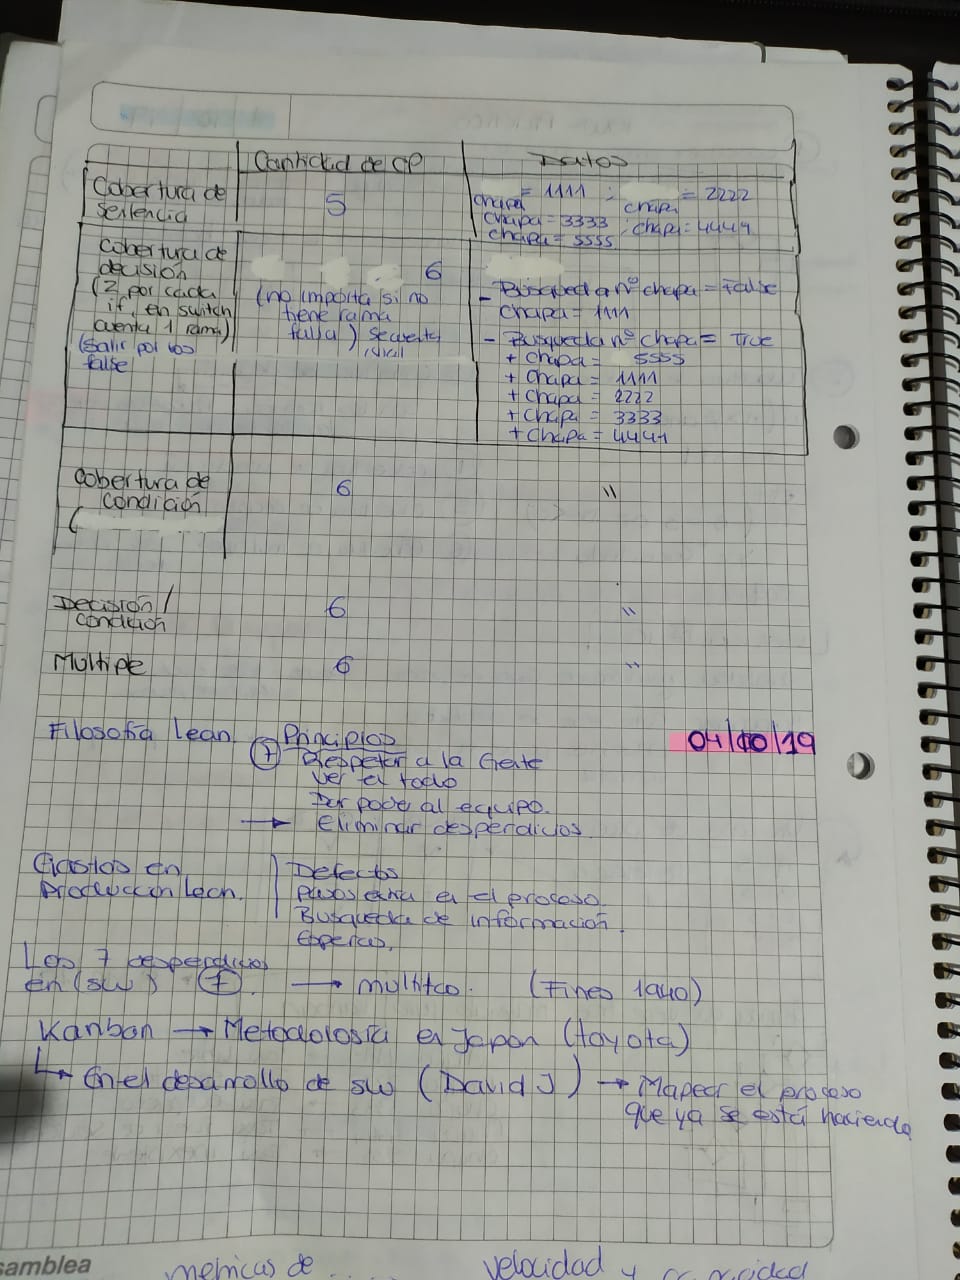 Cantidad de CP
Datos
Cobertura de
sentencia
5
chapa = 1111 ; chapa = 2222
chapa = 3333 ; chapa = 4444
chapa = 5555
Cobertura de
decisión
(2 por cada
if, en switch
cuenta 1 rama)
(salir por los
false
6
(no importa si no
tiene rama
falsa)
- Búsqueda nº chapa = False
chapa = 1111
- Busqueda nº chapa = True
+ chapa = 5555
+ chapa = 1111
+ chapa = 2222
+ chapa = 3333
+ chapa = 4444
Cobertura de
condición
(
6
"
Decisión /
condición
6
"
Multiple
6
"
04/10/19
Filosofía Lean
Principios
7 Respetar a la Gente
ver el todo
Dar poder al equipo.
→ eliminar desperdicios.
Gastos en
Producción Lean.
Defectos
pasos extra en el proceso
Busqueda de información.
esperas.
Los 7 desperdicios
en (sw) 7. → multitco. (Fines 1940)
Kanban → Metodología en Japon (toyota)
↳ En el desarrollo de sw (David J) → Mapear el proceso
que ya se está haciendo
samblea
metricas de
velocidad y capacidad